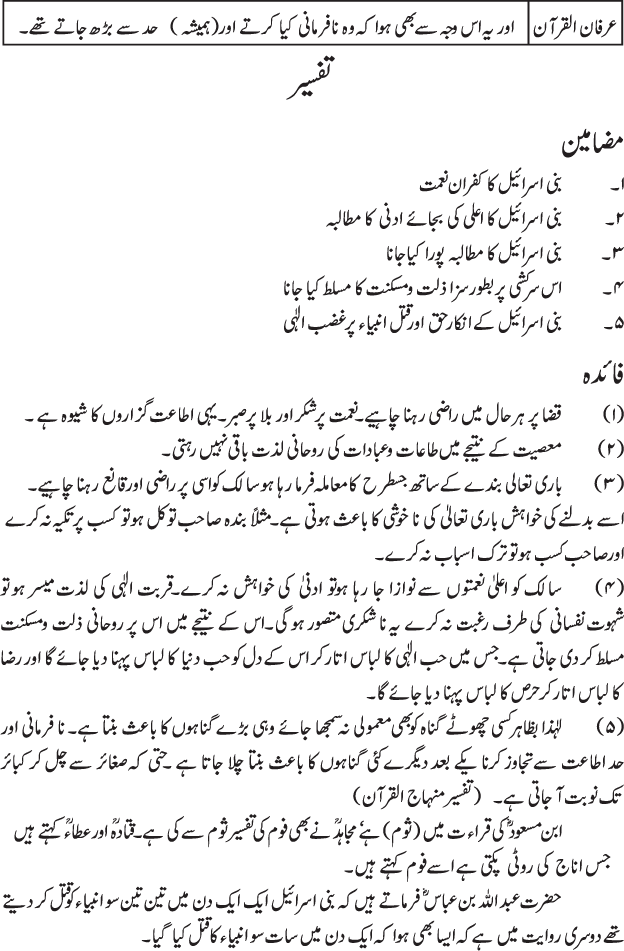 عرفان القرآن | اور یہ اس وجہ سے بھی ہوا کہ وہ نافرمانی کیا کرتے اور (ہمیشہ ) حد سے بڑھ جاتے تھے۔
تفسیر
مضامین
۱۔ بنی اسرائیل کا کفران نعمت
۲۔ بنی اسرائیل کا اعلی کی بجائے ادنی کا مطالبہ
۳۔ بنی اسرائیل کا مطالبہ پورا کیا جانا
۴۔ اس سرکشی پر بطور سزا ذلت و مسکنت کا مسلط کیا جانا
۵۔ بنی اسرائیل کے انکار حق اور قتل انبیاء پر غضب الٰہی
فائدہ
(۱) قضا پر ہر حال میں راضی رہنا چاہیے۔ نعمت پر شکر اور بلا پر صبر۔ یہی اطاعت گزاروں کا شیوہ ہے ۔
(۲) معصیت کے نتیجے میں طاعات و عبادات کی روحانی لذت باقی نہیں رہتی۔
(۳) باری تعالی بندے کے ساتھ جسطرح کا معاملہ فرما رہا ہو سالک کو اسی پر راضی اور قانع رہنا چاہیے۔
اسے بدلنے کی خواہش باری تعالیٰ کی ناخوشی کا باعث ہوتی ہے۔ مثلاً بندہ صاحب توکل ہو تو کسب پر تکیہ نہ کرے
اور صاحب کسب ہو تو ترک اسباب نہ کرے۔
(۴) سالک کو اعلیٰ نعمتوں سے نوازا جا رہا ہو تو ادنیٰ کی خواہش نہ کرے۔ قربت الٰہی کی لذت میسر ہو تو
شہوت نفسانی کی طرف رغبت نہ کرے یہ ناشکری متصور ہوگی۔ اس کے نتیجے میں اس پر روحانی ذلت و مسکنت
مسلط کر دی جاتی ہے۔ جس میں حب الٰہی کا لباس اتار کر اس کے دل کو حب دنیا کا لباس پہنا دیا جائے گا اور رضا
کا لباس اتار کر حرص کا لباس پہنا دیا جائے گا۔
(۵) لہٰذا بظاہر کسی چھوٹے گناہ کو بھی معمولی نہ سمجھا جائے وہی بڑے گناہوں کا باعث بنتا ہے۔ نافرمانی اور
حد اطاعت سے تجاوز کرنا یکے بعد دیگرے کئی گناہوں کا باعث بنتا چلا جاتا ہے ۔ حتی کہ صغائر سے چل کر کبائر
تک نوبت آ جاتی ہے۔ (تفسیر منہاج القرآن)
ابن مسعودؓ کی قراءت میں (ثوم) ہے، مجاہدؒ نے بھی فوم کی تفسیر ثوم سے کی ہے۔ قتادہؒ اور عطاءؒ کہتے ہیں
جس اناج کی روٹی پکتی ہے اسے فوم کہتے ہیں۔
حضرت عبد اللہ بن عباسؓ فرماتے ہیں کہ بنی اسرائیل ایک ایک دن میں تین تین سو انبیاء کو قتل کر دیتے
تھے دوسری روایت میں ہے کہ ایسا بھی ہوا کہ ایک دن میں سات سو انبیاء کا قتل کیا گیا۔